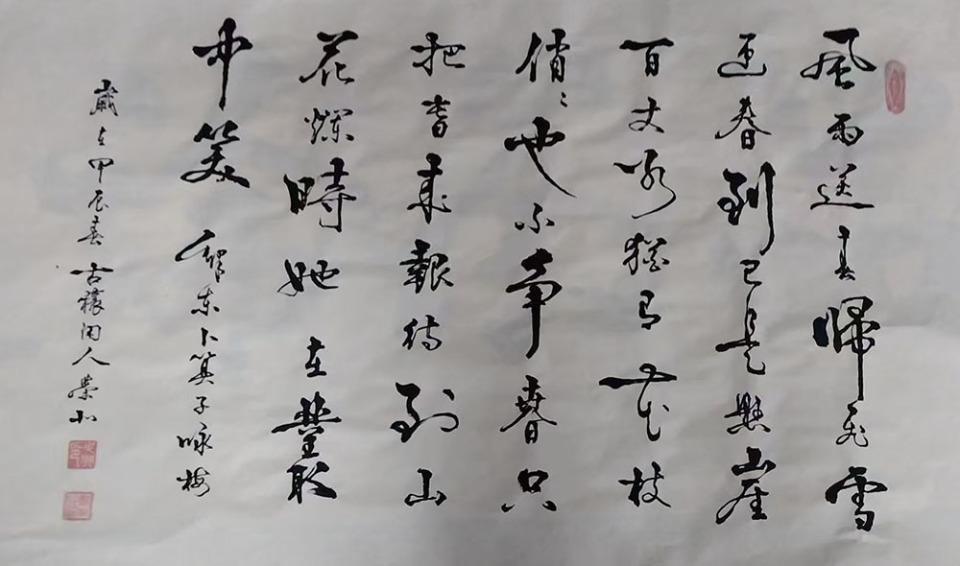 風雨送春歸飛雪
迎春到已是懸崖
百丈冰猶有花枝
俏〻也不争春只
把春來報待到山
花爛時她在叢
中笑 毛澤东卜算子咏梅
歲在甲辰春 古穰闲人